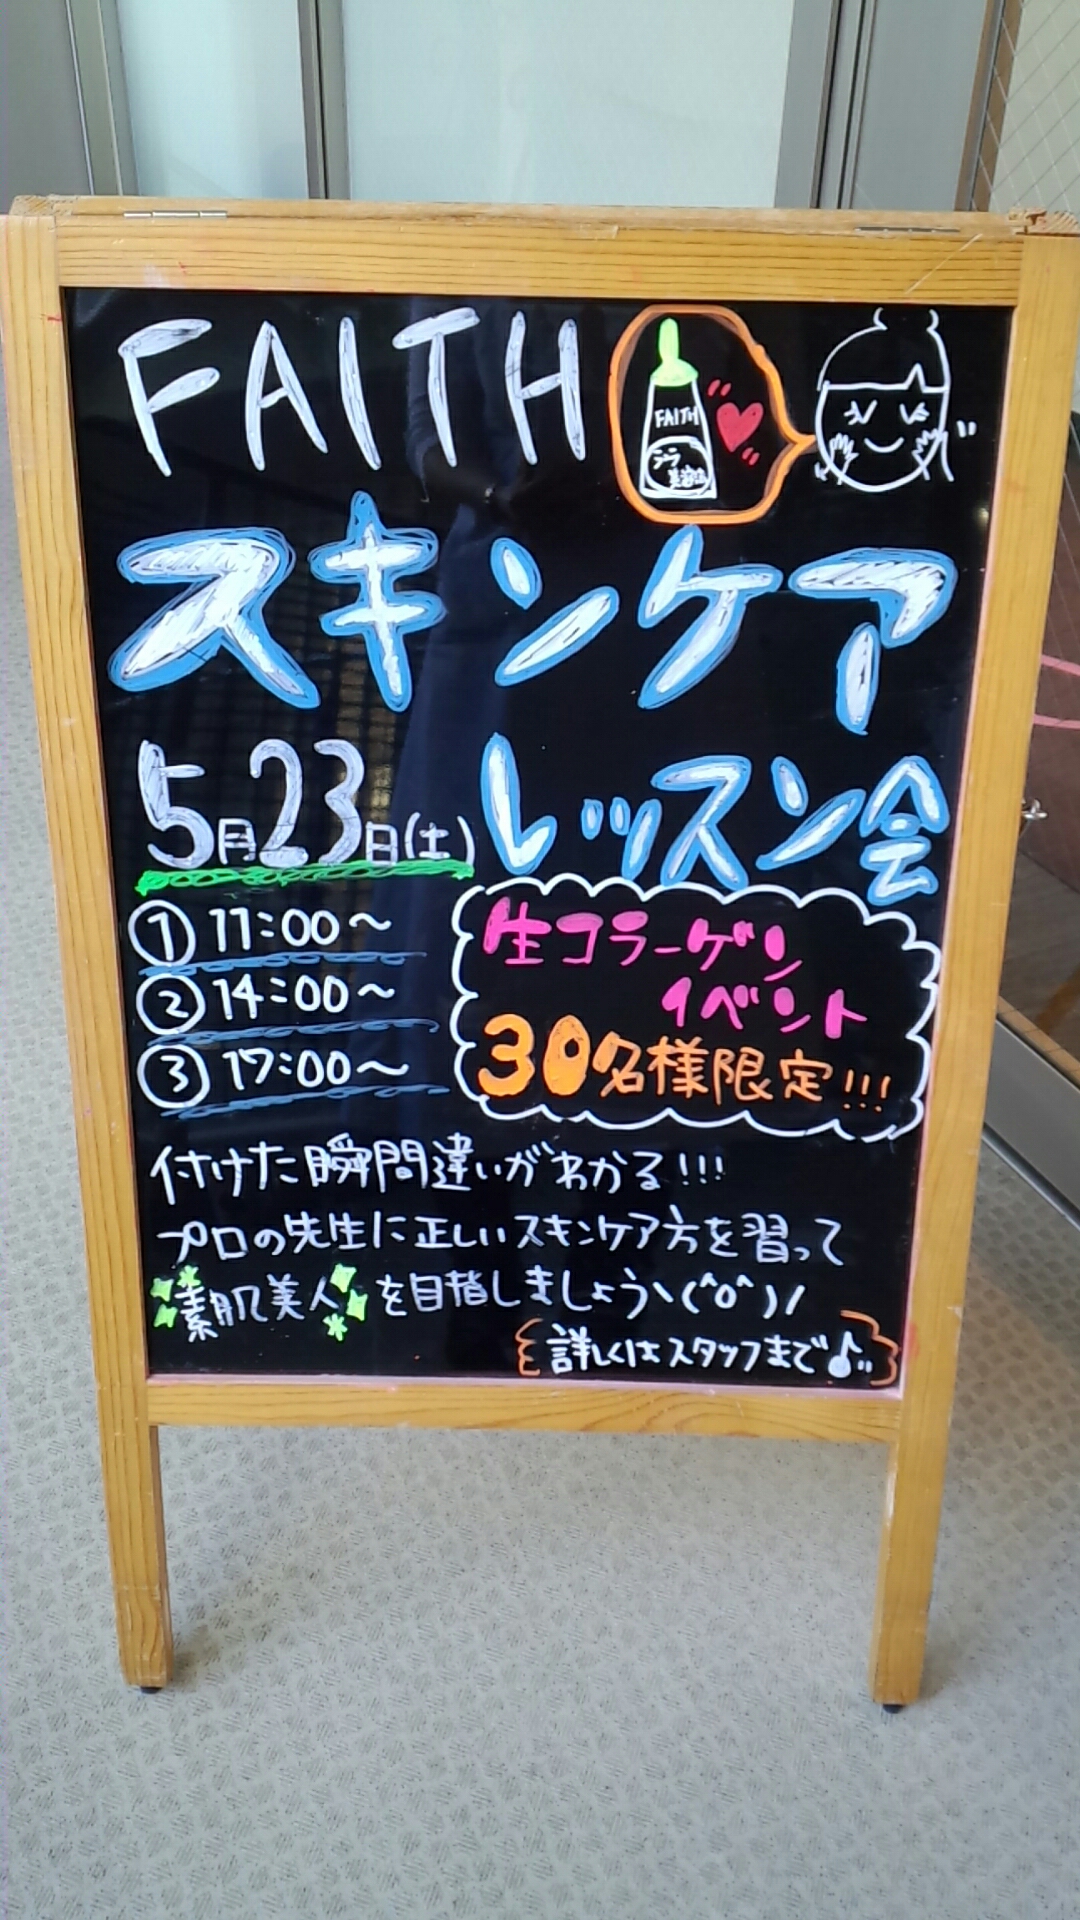 FAITH
FAITH
スキンケア
レッスン会
5月23日(土)
① 11:00〜
② 14:00〜
③ 17:00〜
生コラーゲン
イベント
30名様限定!!!
付けた瞬間違いがわかる!!!
プロの先生に正しいスキンケア方を習って
素肌美人を目指しましょうヽ(^o^)ﾉ
詳しくはスタッフまで♪